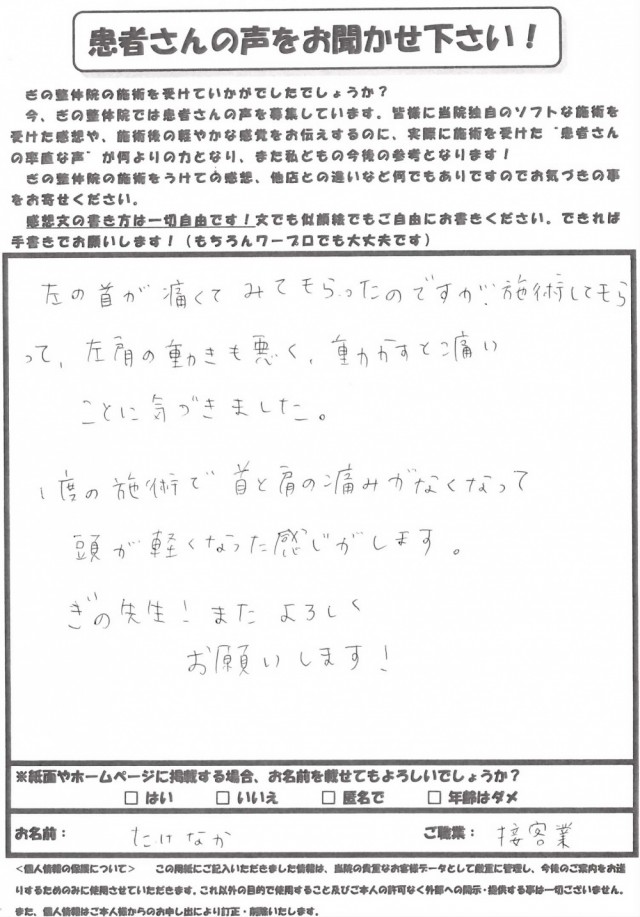 患者さんの声をお聞かせ下さい！
ぎの整体院の施術を受けていかがでしたでしょうか？
今、ぎの整体院では患者さんの声を募集しています。皆様に当院独自のソフトな施術を
受けた感想や、施術後の軽やかな感覚をお伝えするのに、実際に施術を受けた“患者さん
の率直な声”が何よりの力となり、また私どもの今後の参考となります！
ぎの整体院の施術をうけての感想、他店との違いなど何でもありですのでお気づきの事
をお寄せください。
感想文の書き方は一切自由です！文でも似顔絵でもご自由にお書きください。できれば
手書きでお願いします！（もちろんワープロでも大丈夫です）
左の首が痛くてみてもらったのですが、施術してもら
って、左肩の動きも悪く、動かすと痛い
ことに気づきました。
1度の施術で首と肩の痛みがなくなって
頭が軽くなった感じがします。
ぎの先生！またよろしく
お願いします！
※紙面やホームページに掲載する場合、お名前を載せてもよろしいでしょうか？
□ はい □ いいえ □ 匿名で □ 年齢はダメ
お名前： たけなか ご職業： 接客業
＜個人情報の保護について＞ この用紙にご記入いただきました情報は、当院の貴重なお客様データとして厳重に管理し、今後のご案内をお送
りするためのみに使用させていただきます。これ以外の目的で使用すること及びご本人の許可なく外部への開示・提供する事は一切ございません。
また、個人情報はご本人様からのお申し出により訂正・削除いたします。